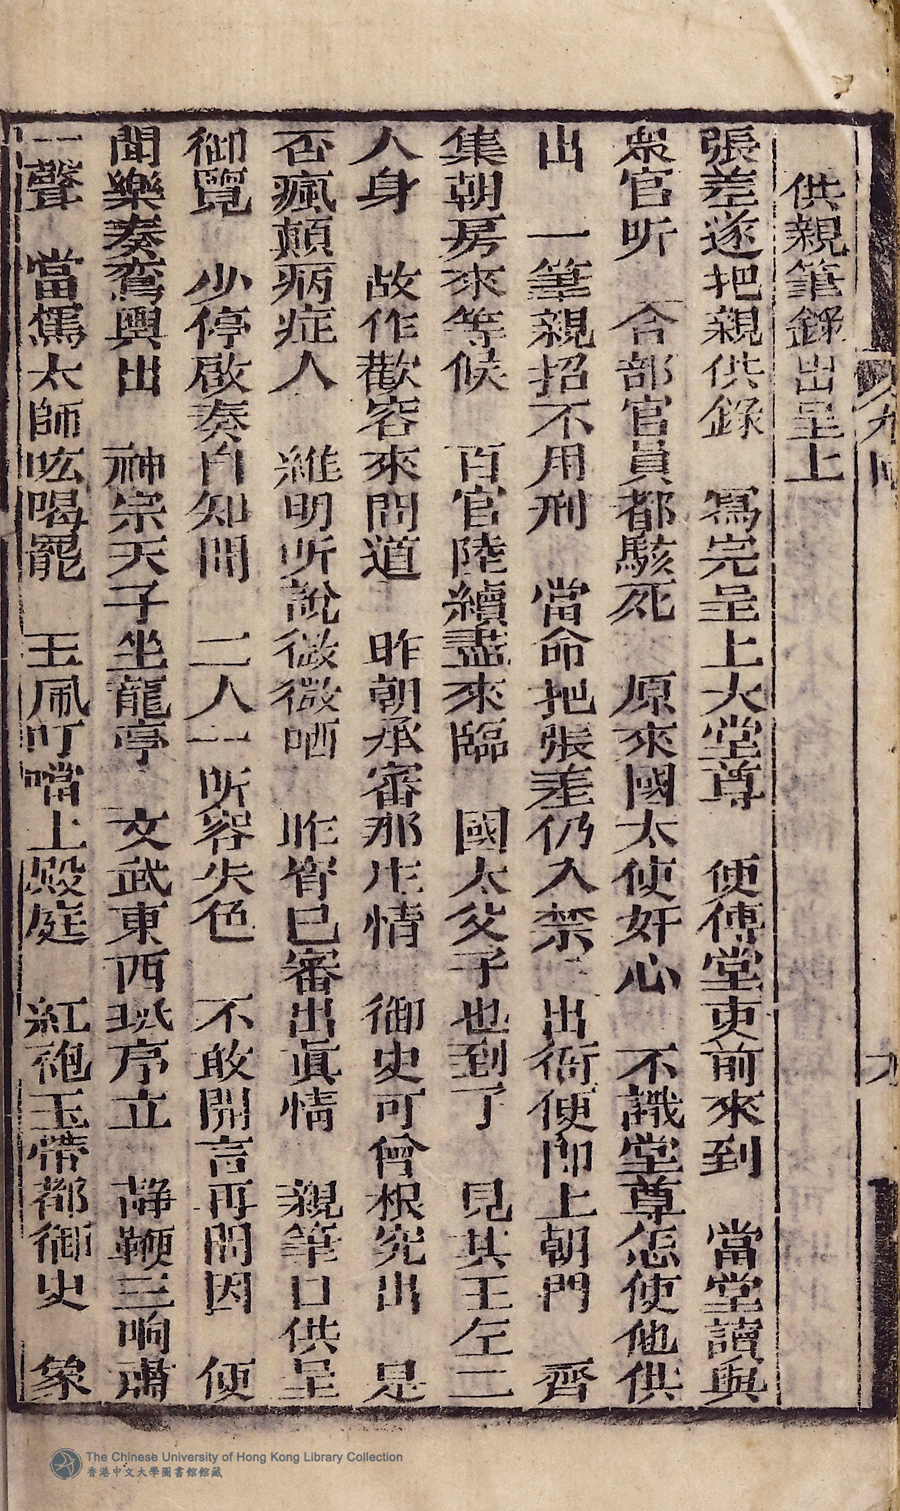 供親筆錄出呈上
張差遂把親供錄　寫完呈上大堂尊　便傳堂吏前來到　當堂讀與
衆官听　合部官員都駭死　原來國太使奸心　不識堂尊怎使他供
出　一筆親招不用刑　當命把張差仍入禁　出衙便卽上朝門　齊
集朝房來等候　百官陸續盡來臨　國太父子也到了　見其王左二
人身　故作歡容來問道　昨朝承審那庄情　御史可曾根究出　是
否瘋顛病症人　維明听說微微哂　昨宵已審出真情　親筆口供呈
御覽　少停啟奏自知聞　二人一听容失色　不敢開言再問因　便
聞樂奏鸞輿出　神宗天子坐龍亭　文武東西班序立　静鞭三响肅
一聲　當駕太師吆喝罷　玉珮叮噹上殿庭　紅袍玉帶都御史　象
The Chinese University of Hong Kong Library Collection
香港中文大學圖書館館藏